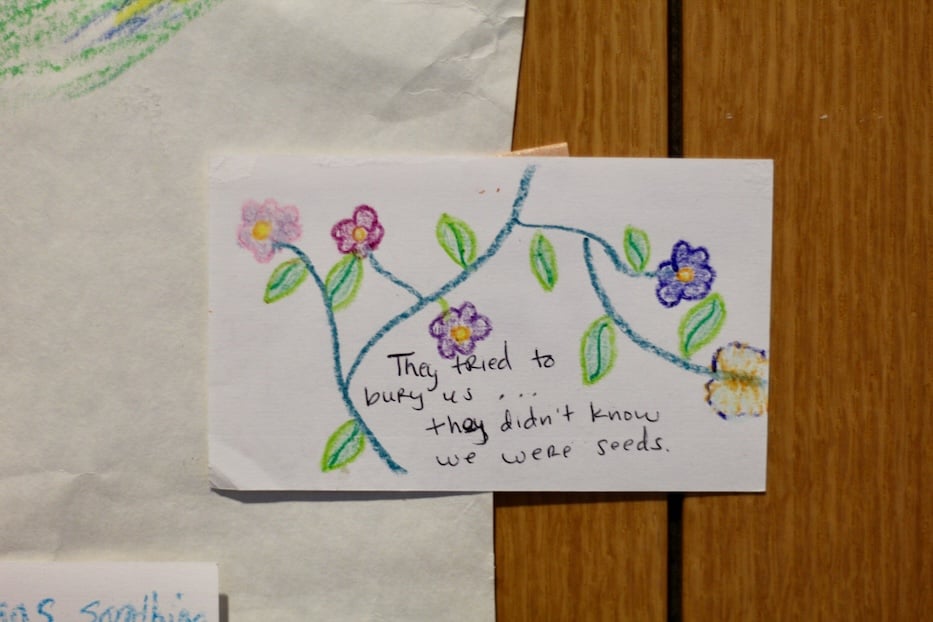 They tried to
bury us ...
they didn't know
we were seeds.
something